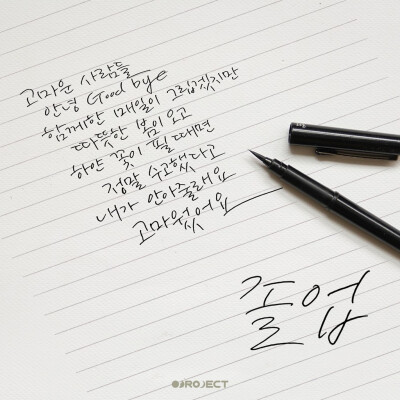 고마운 사람들
안녕 Good bye
함께한 매일이 그립겠지만
따뜻한 봄이 오고
하얀 꽃이 필 때면
정말 수고했다고
내가 안아줄래요
고마웠어요
졸업
PROJECT